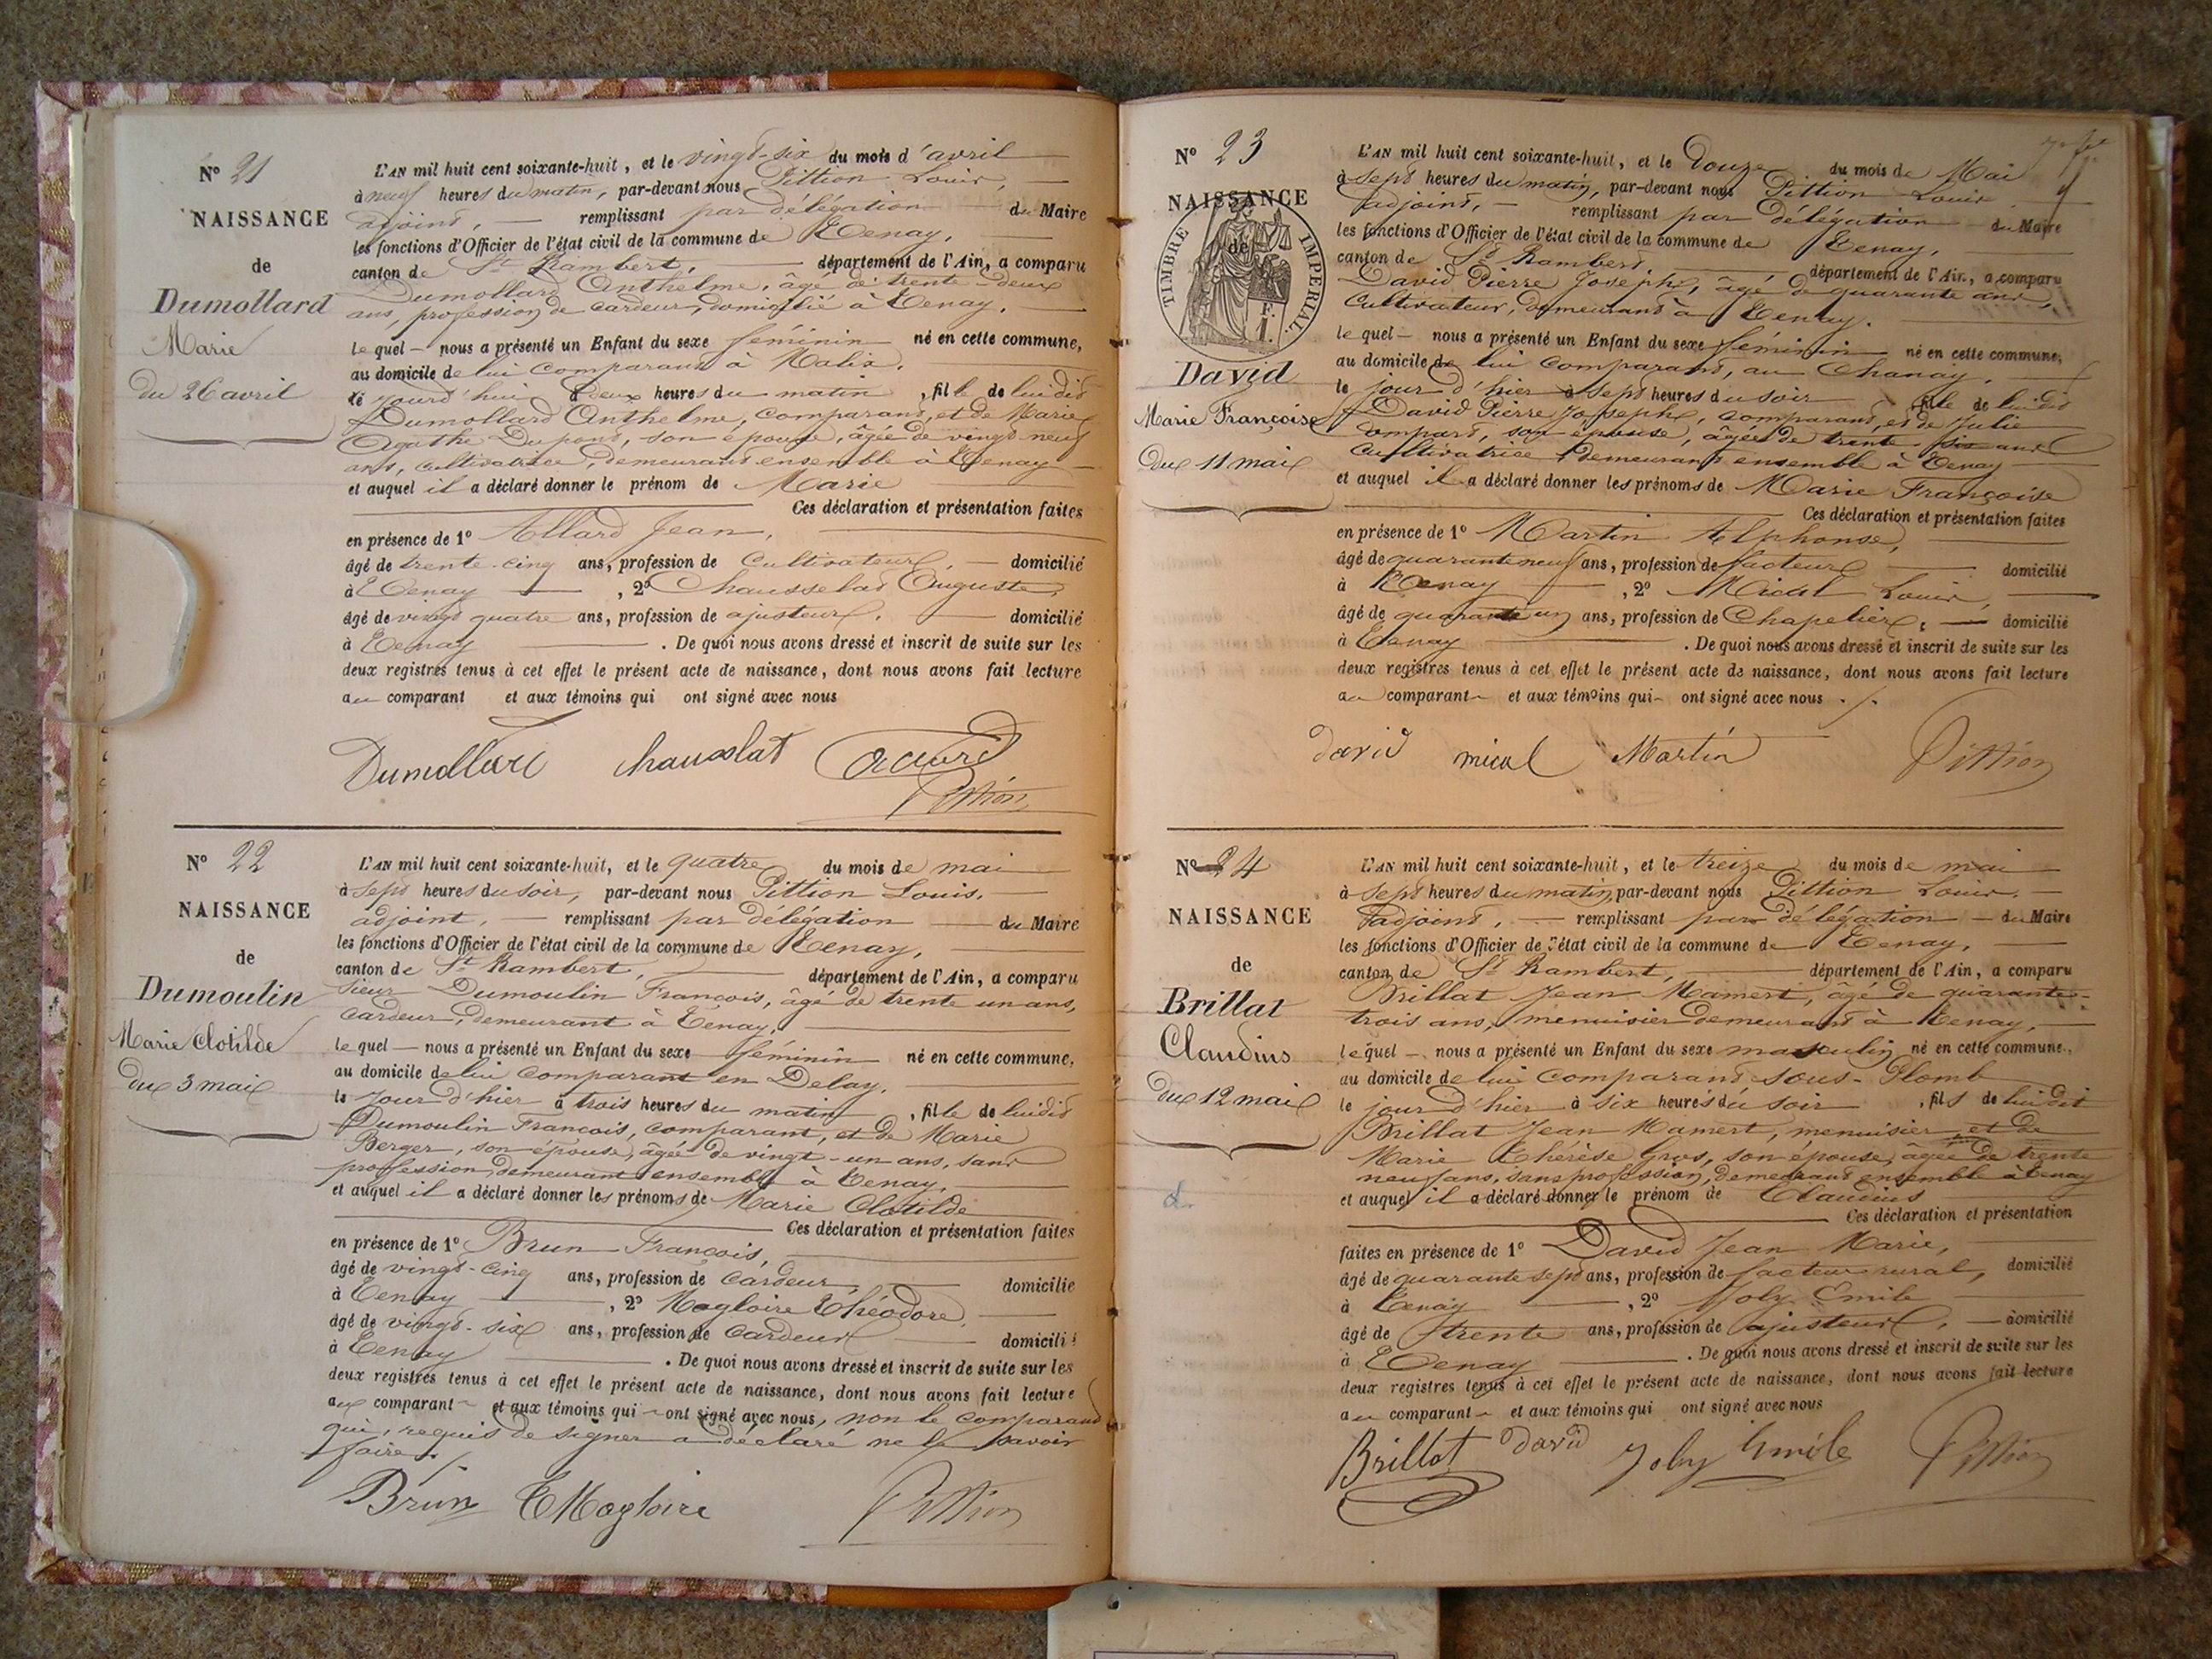 N° 21
NAISSANCE
de
Dumollard
Marie
Du 26 avril
L'AN mil huit cent soixante-huit, et le vingt-six du mois d'avril
à neuf heures du matin, par-devant nous Pittion Louis,
adjoint, remplissant par délégation du Maire
les fonctions d'Officier de l'état civil de la commune de Tenay,
canton de St Rambert, département de l'Ain, a comparu
Dumollard Anthelme, âgé de trente-deux
ans, profession de cardeur, domicilié à Tenay.
lequel nous a présenté un Enfant du sexe féminin né en cette commune,
au domicile de lui comparant à Malix,
le jourd'hui à deux heures du matin, fille de lui dit
Dumollard Anthelme, comparant, et de Marie
Agathe Dupont, son épouse, âgée de vingt neuf
ans, cultivatrice, demeurant ensemble à Tenay
et auquel il a déclaré donner le prénom de Marie
Ces déclaration et présentation faites
en présence de 1° Allard Jean,
âgé de trente-cinq ans, profession de Cultivateur, domicilié
à Tenay, 2° Chausselat Auguste,
âgé de vingt quatre ans, profession de ajusteur, domicilié
à Tenay. De quoi nous avons dressé et inscrit de suite sur les
deux registres tenus à cet effet le présent acte de naissance, dont nous avons fait lecture
au comparant et aux témoins qui ont signé avec nous
Dumollard chausslat
Pittion
N° 22
NAISSANCE
de
Dumoulin
Marie Clotilde
du 3 mai
L'AN mil huit cent soixante-huit, et le quatre du mois de mai
à sept heures du soir, par-devant nous Pittion Louis,
adjoint, remplissant par délégation du Maire
les fonctions d'Officier de l'état civil de la commune de Tenay,
canton de St Rambert, département de l'Ain, a comparu
Sieur Dumoulin François, âgé de trente un ans,
Cardeur, demeurant à Tenay,
lequel nous a présenté un Enfant du sexe féminin né en cette commune,
au domicile de lui comparant en Delay,
le jour d'hier à trois heures du matin, fille de lui dit
Dumoulin François, comparant, et de Marie
Berger, son épouse, âgée de vingt-un ans, sans
profession, demeurant ensemble à Tenay.
et auquel il a déclaré donner les prénoms de Marie Clotilde
Ces déclaration et présentation faites
en présence de 1° Brun François,
âgé de vingt-cinq ans, profession de Cardeur domicilié
à Tenay, 2° Magloire Théodore,
âgé de vingt-six ans, profession de Cardeur domicilié
à Tenay. De quoi nous avons dressé et inscrit de suite sur les
deux registres tenus à cet effet le présent acte de naissance, dont nous avons fait lecture
au comparant et aux témoins qui ont signé avec nous, non le comparant
qui, requis de signer a déclaré ne le savoir
faire.
Brun T Magloire Pittion
N° 23
NAISSANCE
de
TIMBRE IMPERIAL
F.
1.
David
Marie Françoise
du 11 mai
L'AN mil huit cent soixante-huit, et le Douze du mois de Mai
à sept heures du matin, par-devant nous Pittion Louis
adjoint, remplissant par délégation du Maire
les fonctions d'Officier de l'état civil de la commune de Tenay,
canton de St Rambert département de l'Ain, a comparu
David Pierre Joseph, âgé de quarante ans,
Cultivateur, demeurant à Tenay.
lequel nous a présenté un Enfant du sexe féminin né en cette commune,
au domicile de lui comparant, au Chanay,
le jour d'hier à sept heures du soir fille de lui dit
David Pierre Joseph, comparant, et de Julie
son épouse, âgée de trente six ans
Cultivatrice demeurant ensemble à Tenay
et auquel il a déclaré donner les prénoms de Marie Françoise
Ces déclaration et présentation faites
en présence de 1° Martin Alphonse,
âgé de quarante neuf ans, profession de facteur domicilié
à Tenay, 2° Mical Louis,
âgé de quarante un ans, profession de Chapelier, domicilié
à Tenay. De quoi nous avons dressé et inscrit de suite sur les
deux registres tenus à cet effet le présent acte de naissance, dont nous avons fait lecture
au comparant et aux témoins qui ont signé avec nous.
david mical Martin Pittion
N° 24
NAISSANCE
de
Brillat
Claudius
du 12 mai
L'AN mil huit cent soixante-huit, et le treize du mois de mai
à sept heures du matin, par-devant nous Pittion Louis,
adjoint, remplissant par délégation du Maire
les fonctions d'Officier de l'état civil de la commune de Tenay,
canton de St Rambert, département de l'Ain, a comparu
Brillat Jean Mamert, âgé de quarante-
trois ans, menuisier demeurant à Tenay,
lequel nous a présenté un Enfant du sexe masculin né en cette commune,
au domicile de lui comparant sous-Plomb
le jour d'hier à six heures du soir, fils de lui dit
Brillat Jean Mamert, menuisier et de
Marie Thérèse Gros, son épouse, âgée de trente
neuf ans, sans profession, demeurant ensemble à Tenay
et auquel il a déclaré donner le prénom de Claudius
Ces déclaration et présentation
faites en présence de 1° David Jean Marie,
âgé de quarante sept ans, profession de facteur rural, domicilié
à Tenay, 2° Joly Emile
âgé de trente ans, profession de ajusteur, domicilié
à Tenay. De quoi nous avons dressé et inscrit de suite sur les
deux registres tenus à cet effet le présent acte de naissance, dont nous avons fait lecture
au comparant et aux témoins qui ont signé avec nous
Brillat David Joly Emile Pittion